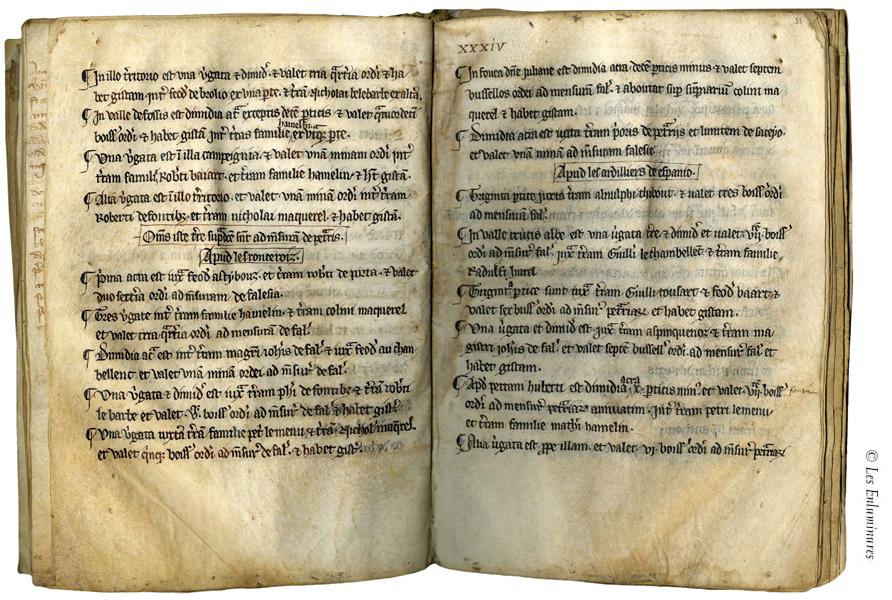 ¶ In illo t̃ritorio est vna ṽgata ⁊ dimid̛. ⁊ valet tria q̃rt̃ia ordi ⁊ ha
bet gistam. int̃ feod̛ de ex vna p̃te. ⁊ t̃rã Nicholai belebarbe ex alt̃a.
¶ In valle de fossis est dimidia ac̃ exceptis decẽ p̃ticis ⁊ valet
boiss̛ ordi ⁊ habet gistã int̃ t̃ras familie hamelin ex vtq̃ p̃te.
¶ Vna ṽgata est ĩ illa campeignia. ⁊ valet vnã minam ordi int̃
t̃ram famil̛ Rob̃ti baiart. et t̃ram familie hamelin ⁊ h̃t gistã.
¶ Alia ṽgata est ĩ illo t̃ritorio. et valet vnã minã ordi int̃ t̃ram
Roberti de fontib⁊. et t̃ram nicholai maquerel. ⁊ habet gistã.
Om̃s iste t̃re sup̃dc̃e sũt ad m̃surã de pet̃ris.
Apud les ronceroiz.
¶ P̃ma acra est iux̃ feod̛ ⁊ t̃ram rob̃ti de porta. ⁊ valet
duo sext̃ia ordi ad m̃suram de falesia.
¶ Tres ṽgate int̃ t̃ram familie hamelin. ⁊ t̃ram colini maquerel
et valet tria q̃rt̃ia ordi ad mensurã de fal̛.
¶ Dimidia ac̃ est int̃ t̃ram maḡri ioh̃is de fal̛ ⁊ iux̃ feod̛ au cham
bellenc et valet vnã minã ordei ad m̃sur̃ de fal̛.
¶ Vna ṽgata ⁊ dimid̛ est iux̃ t̃ram ph̃i de fontib⁊ ⁊ t̃rã rob̃ti
le barbe et valet boiss̛ ordi ad m̃sur̃ de fal̛ ⁊ habet gist̃.
¶ Vna ṽgata iuxta t̃rã familie pet̃ lemenu ⁊ t̃rã Nichol̛ maq̃rel.
et valet q̃nq⁊ boiss̛ ordi ad m̃sur̃ de fal̛. ⁊ habet gist̃.
XXXIV
31
¶ In fouea dñe iuliane est dimidia acra. decẽ p̃ticis minus ⁊ valet septem
bussellos ordei ad mensurã fal̛. ⁊ aboutat sup̃ colini ma
querel ⁊ habet gistam.
¶ Dimidia acra est iuxta t̃ram p̃oris de pet̃ris ⁊ limitem de
et valet vnã minã ad m̃suram falesie
Apud les ardilliers de espanio.
¶ Triginta p̃tice iuxta t̃ram arnulphi thibout. ⁊ valet tres boiss̛ ordi
ad mensurã fal̛.
¶ In valle crucis albe est vna ṽgata t̃re ⁊ dimid̛ et ualet vii boiss̛
ordi ad m̃sur̃ fal̛ iux̃ t̃ram Guill̃i lechambellenc ⁊ t̃ram familie
Radulfi hurel
¶ Trigint̃ p̃tice sunt iux̃ t̃ram Guill̃i tousart ⁊ feod̛ baart ⁊
valet sex buss̛ ordi ad m̃sur̃ pet̃rar̃ et habet gistam.
¶ Vna ṽgata et dimid̛ est iux̃ t̃ram aspinguenor̃ ⁊ t̃ram ma
gistri ioh̃is de fal̛ et valet septẽ bussell̛ ordi. ad mensur̃ fal̛ et
habet gistam.
¶ Ap̃d petram huberti est dimidia acra x. p̃ticis min⁹ et valet vii boiss̛
ordi ad mensur̃ pet̃rar̃ annuatim. int̃ t̃ram petri lemenu.
et t̃ram familie math̃i hamelin.
¶ Alia ṽgata est p̃pe illam. et valet. vi. boiss̛ ordi ad m̃sur̃ pet̃rar̃
© Les Enluminures